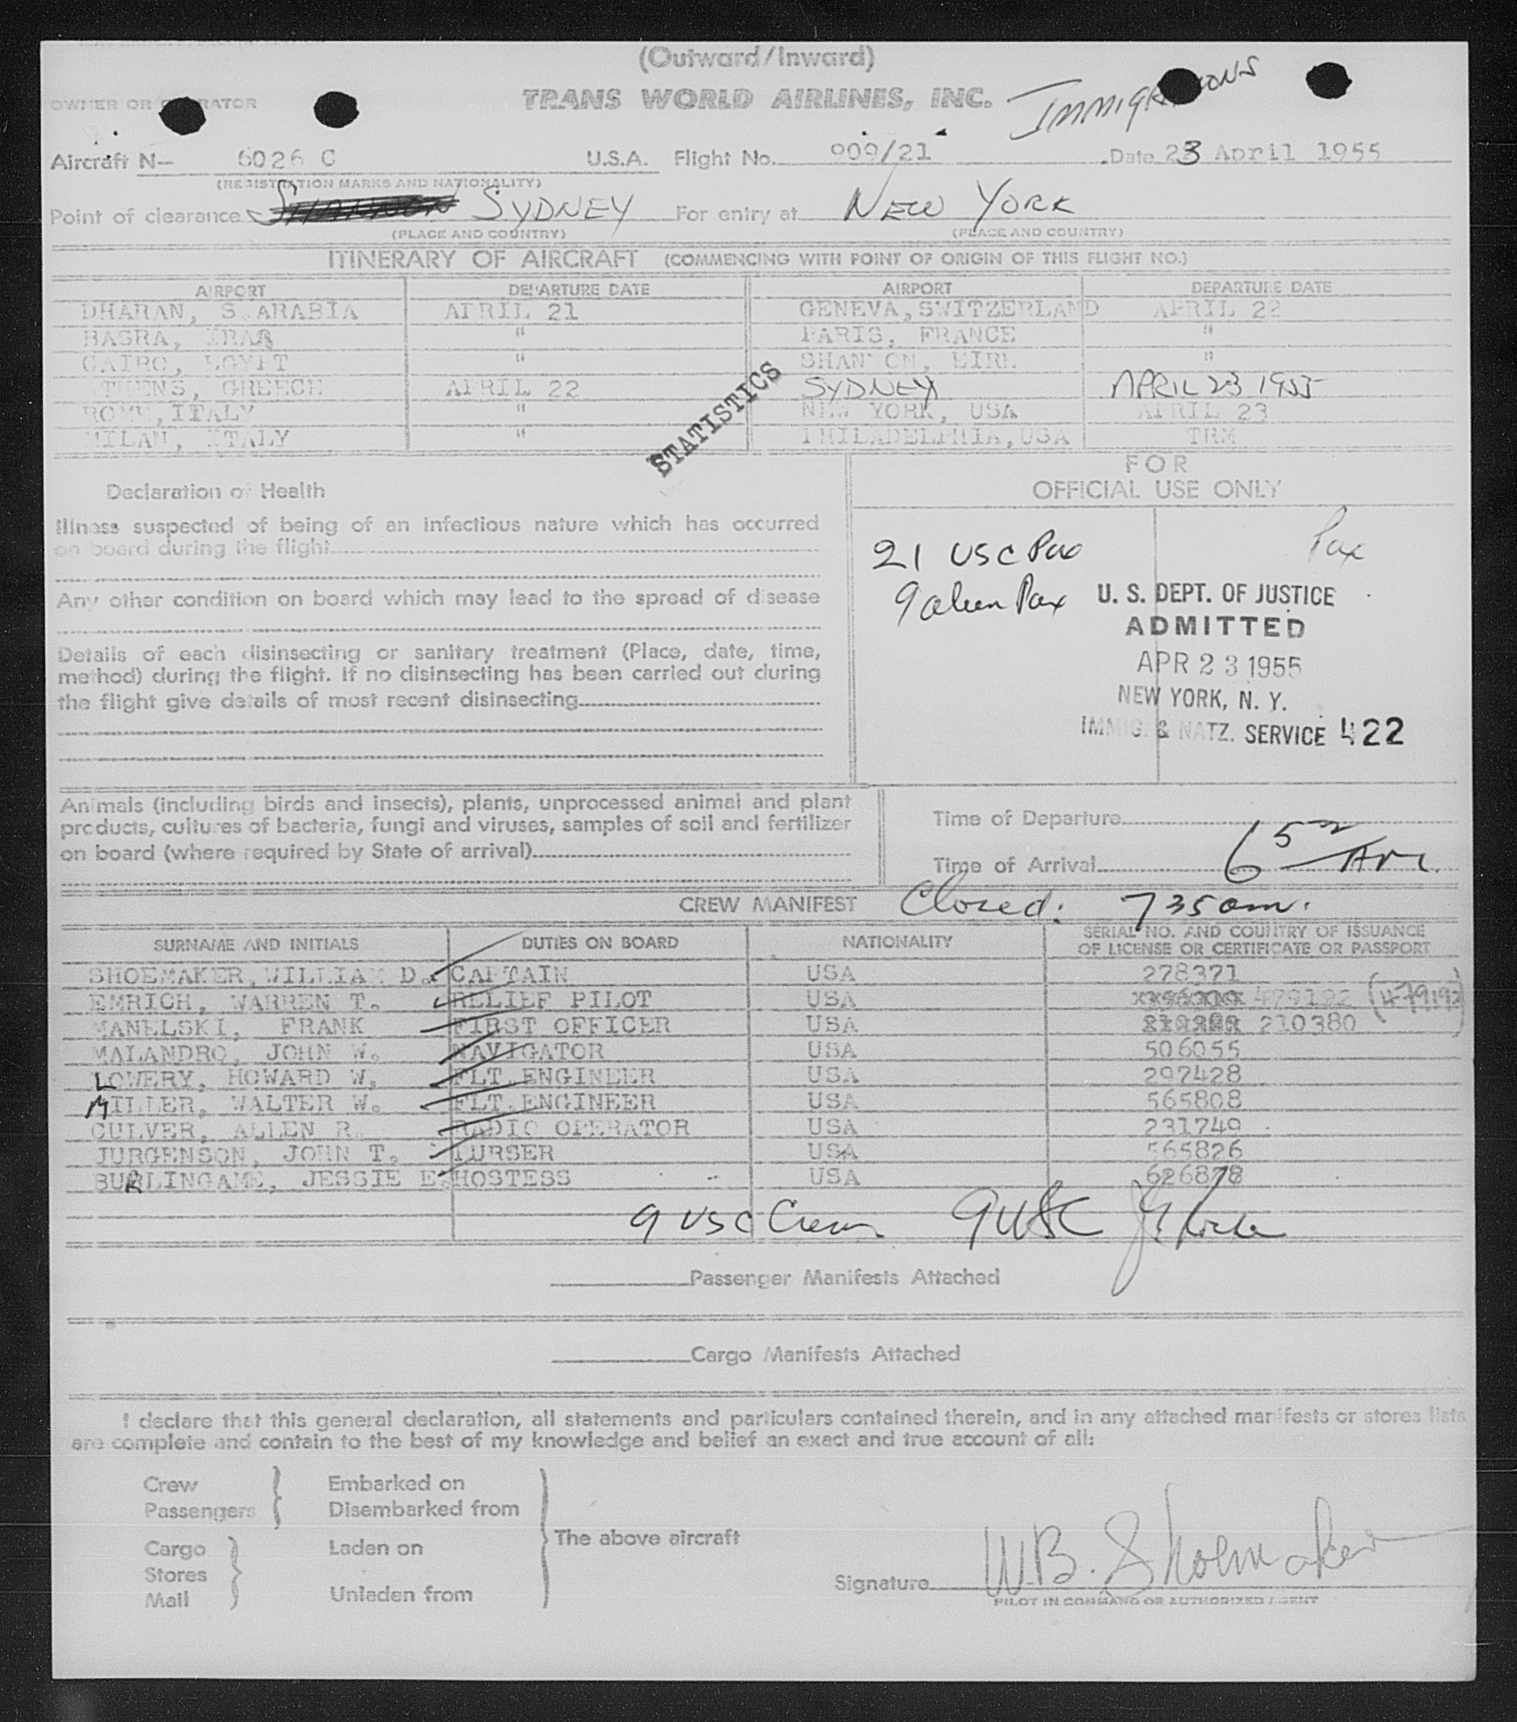 (Outward/Inward)
OWNER OR OPERATOR TRANS WORLD AIRLINES, INC. IMMIGRATIONS
Aircraft N— 6026 C U.S.A. Flight No. 909/21 Date 23 April 1955
(REGISTRATION MARKS AND NATIONALITY)
Point of clearance SHANNON SYDNEY For entry at NEW YORK
(PLACE AND COUNTRY) (PLACE AND COUNTRY)
ITINERARY OF AIRCRAFT (COMMENCING WITH POINT OF ORIGIN OF THIS FLIGHT NO.)
AIRPORT DEPARTURE DATE AIRPORT DEPARTURE DATE
DHARAN, S.ARABIA APRIL 21 GENEVA, SWITZERLAND APRIL 22
BASRA, IRAQ " PARIS, FRANCE "
CAIRO, EGYPT " SHANNON, EIRE "
ATHENS, GREECE APRIL 22 SYDNEY APRIL 23 1955
ROME, ITALY " NEW YORK, USA APRIL 23
MILAN, ITALY " PHILADELPHIA, USA TRM
STATISTICS
FOR
OFFICIAL USE ONLY
Declaration of Health
Illness suspected of being of an infectious nature which has occurred
on board during the flight
21 USC Pax Pax
9 alien Pax
Any other condition on board which may lead to the spread of disease
U. S. DEPT. OF JUSTICE
ADMITTED
APR 23 1955
NEW YORK, N. Y.
IMMIG. & NATZ. SERVICE 422
Details of each disinsecting or sanitary treatment (Place, date, time,
method) during the flight. If no disinsecting has been carried out during
the flight give details of most recent disinsecting
Animals (including birds and insects), plants, unprocessed animal and plant
products, cultures of bacteria, fungi and viruses, samples of soil and fertilizer
on board (where required by State of arrival)
Time of Departure
Time of Arrival 6 AM.
CREW MANIFEST Closed: 735 am.
SURNAME AND INITIALS DUTIES ON BOARD NATIONALITY SERIAL NO. AND COUNTRY OF ISSUANCE
OF LICENSE OR CERTIFICATE OR PASSPORT
SHOEMAKER, WILLIAM D. CAPTAIN USA 278371
EMRICH, WARREN T. RELIEF PILOT USA 479192 (479192)
MANELSKI, FRANK FIRST OFFICER USA 210380
MALANDRO, JOHN W. NAVIGATOR USA 506055
LOWERY, HOWARD W. FLT.ENGINEER USA 297428
MILLER, WALTER W. FLT.ENGINEER USA 565808
CULVER, ALLEN R. RADIO OPERATOR USA 231749
JURGENSON, JOHN T. PURSER USA 565826
BURLINGAME, JESSIE E. HOSTESS USA 626878
9 USC Crew 9 USC
Passenger Manifests Attached
Cargo Manifests Attached
I declare that this general declaration, all statements and particulars contained therein, and in any attached manifests or stores lists
are complete and contain to the best of my knowledge and belief an exact and true account of all:
Crew Embarked on
Passengers Disembarked from
The above aircraft
Cargo Laden on
Stores
Mail Unladen from
Signature W.B. Shoemaker
PILOT IN COMMAND OR AUTHORIZED AGENT